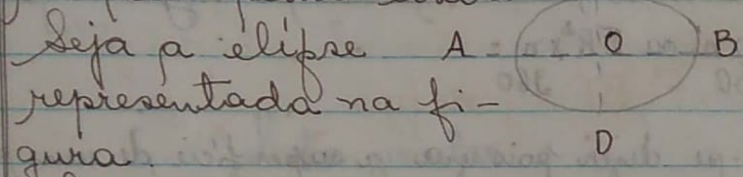 Seja a elipse A O B
representada na fi-
gura.
D